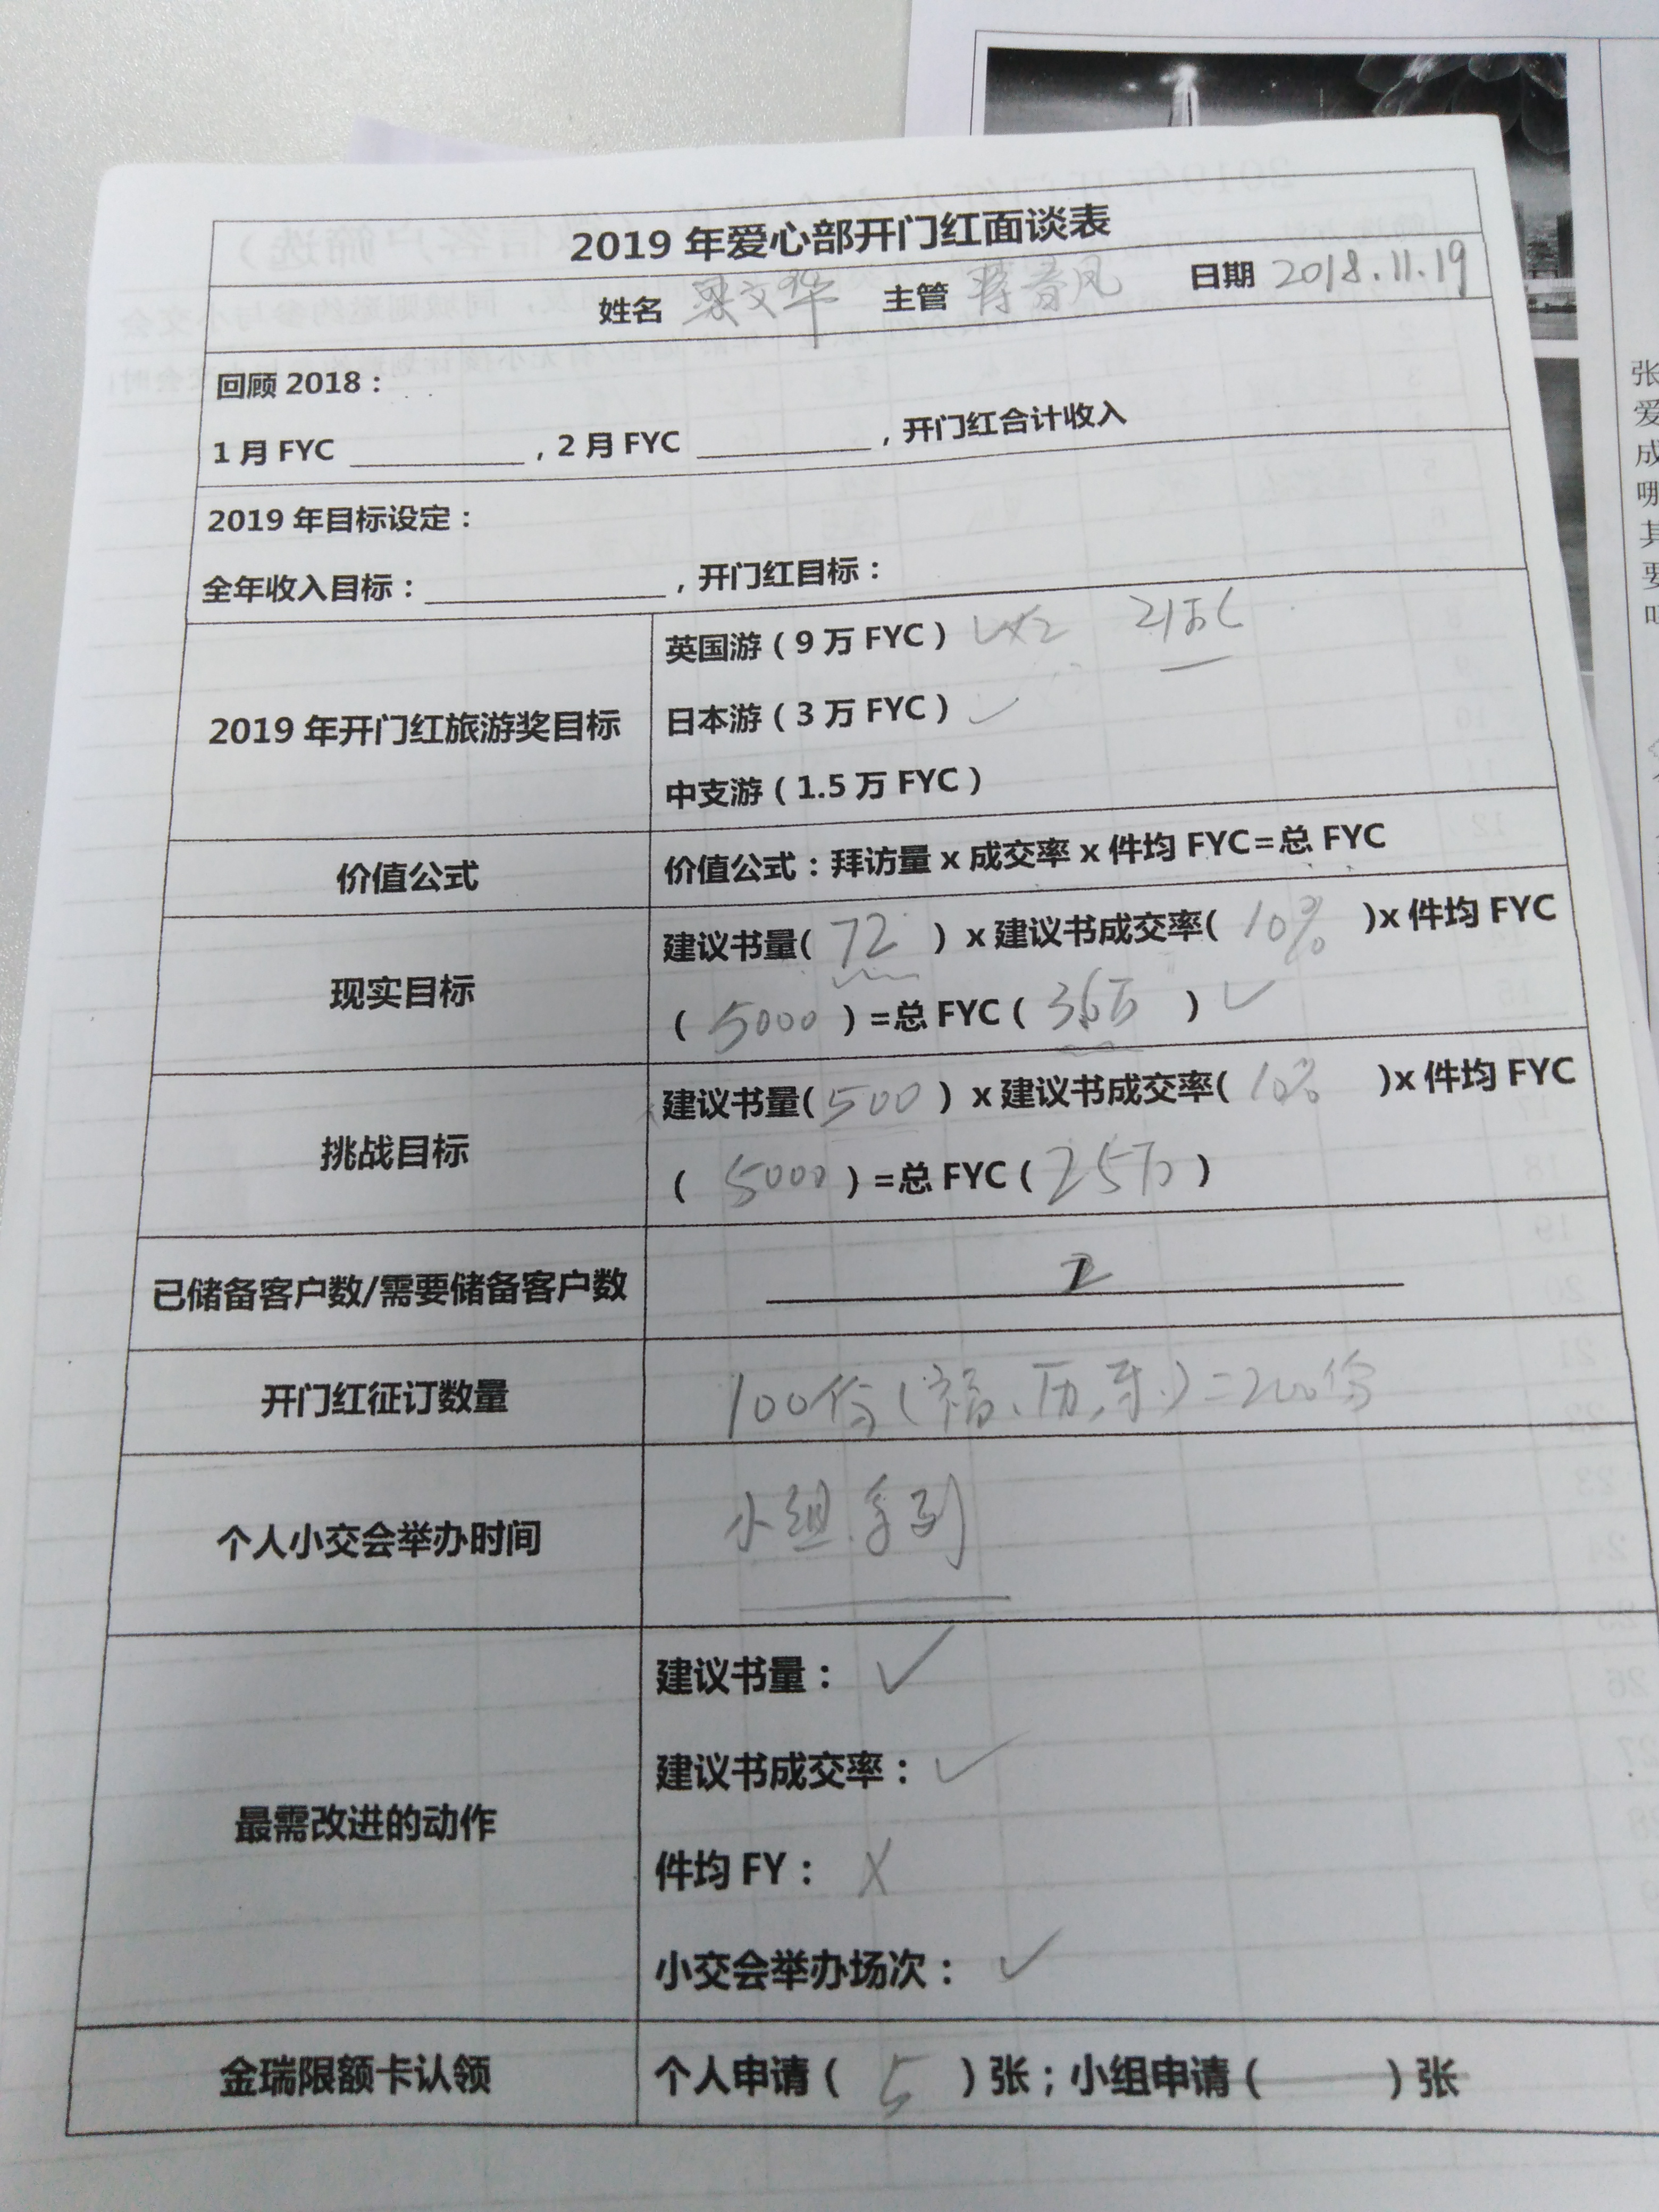 2019年爱心部开门红面谈表
姓名 梁文华 主管 蒋春凤 日期 2018.11.19
回顾2018：
1月FYC ________，2月FYC ________，开门红合计收入
2019年目标设定：
全年收入目标：________，开门红目标：
英国游（9万FYC）✓×2 21万
2019年开门红旅游奖目标
日本游（3万FYC）✓
中支游（1.5万FYC）
价值公式 价值公式：拜访量x成交率x件均FYC=总FYC
现实目标
建议书量(72)x建议书成交率(10%)x件均FYC
(5000)=总FYC(36万)✓
挑战目标
建议书量(500)x建议书成交率(10%)x件均FYC
(5000)=总FYC(25万)
已储备客户数/需要储备客户数 2
开门红征订数量 100份(福、历、)=200份
个人小交会举办时间 小组.系列
最需改进的动作
建议书量：✓
建议书成交率：✓
件均FY：X
小交会举办场次：✓
金瑞限额卡认领 个人申请(5)张；小组申请( )张
张
爱
成
哪
其
要